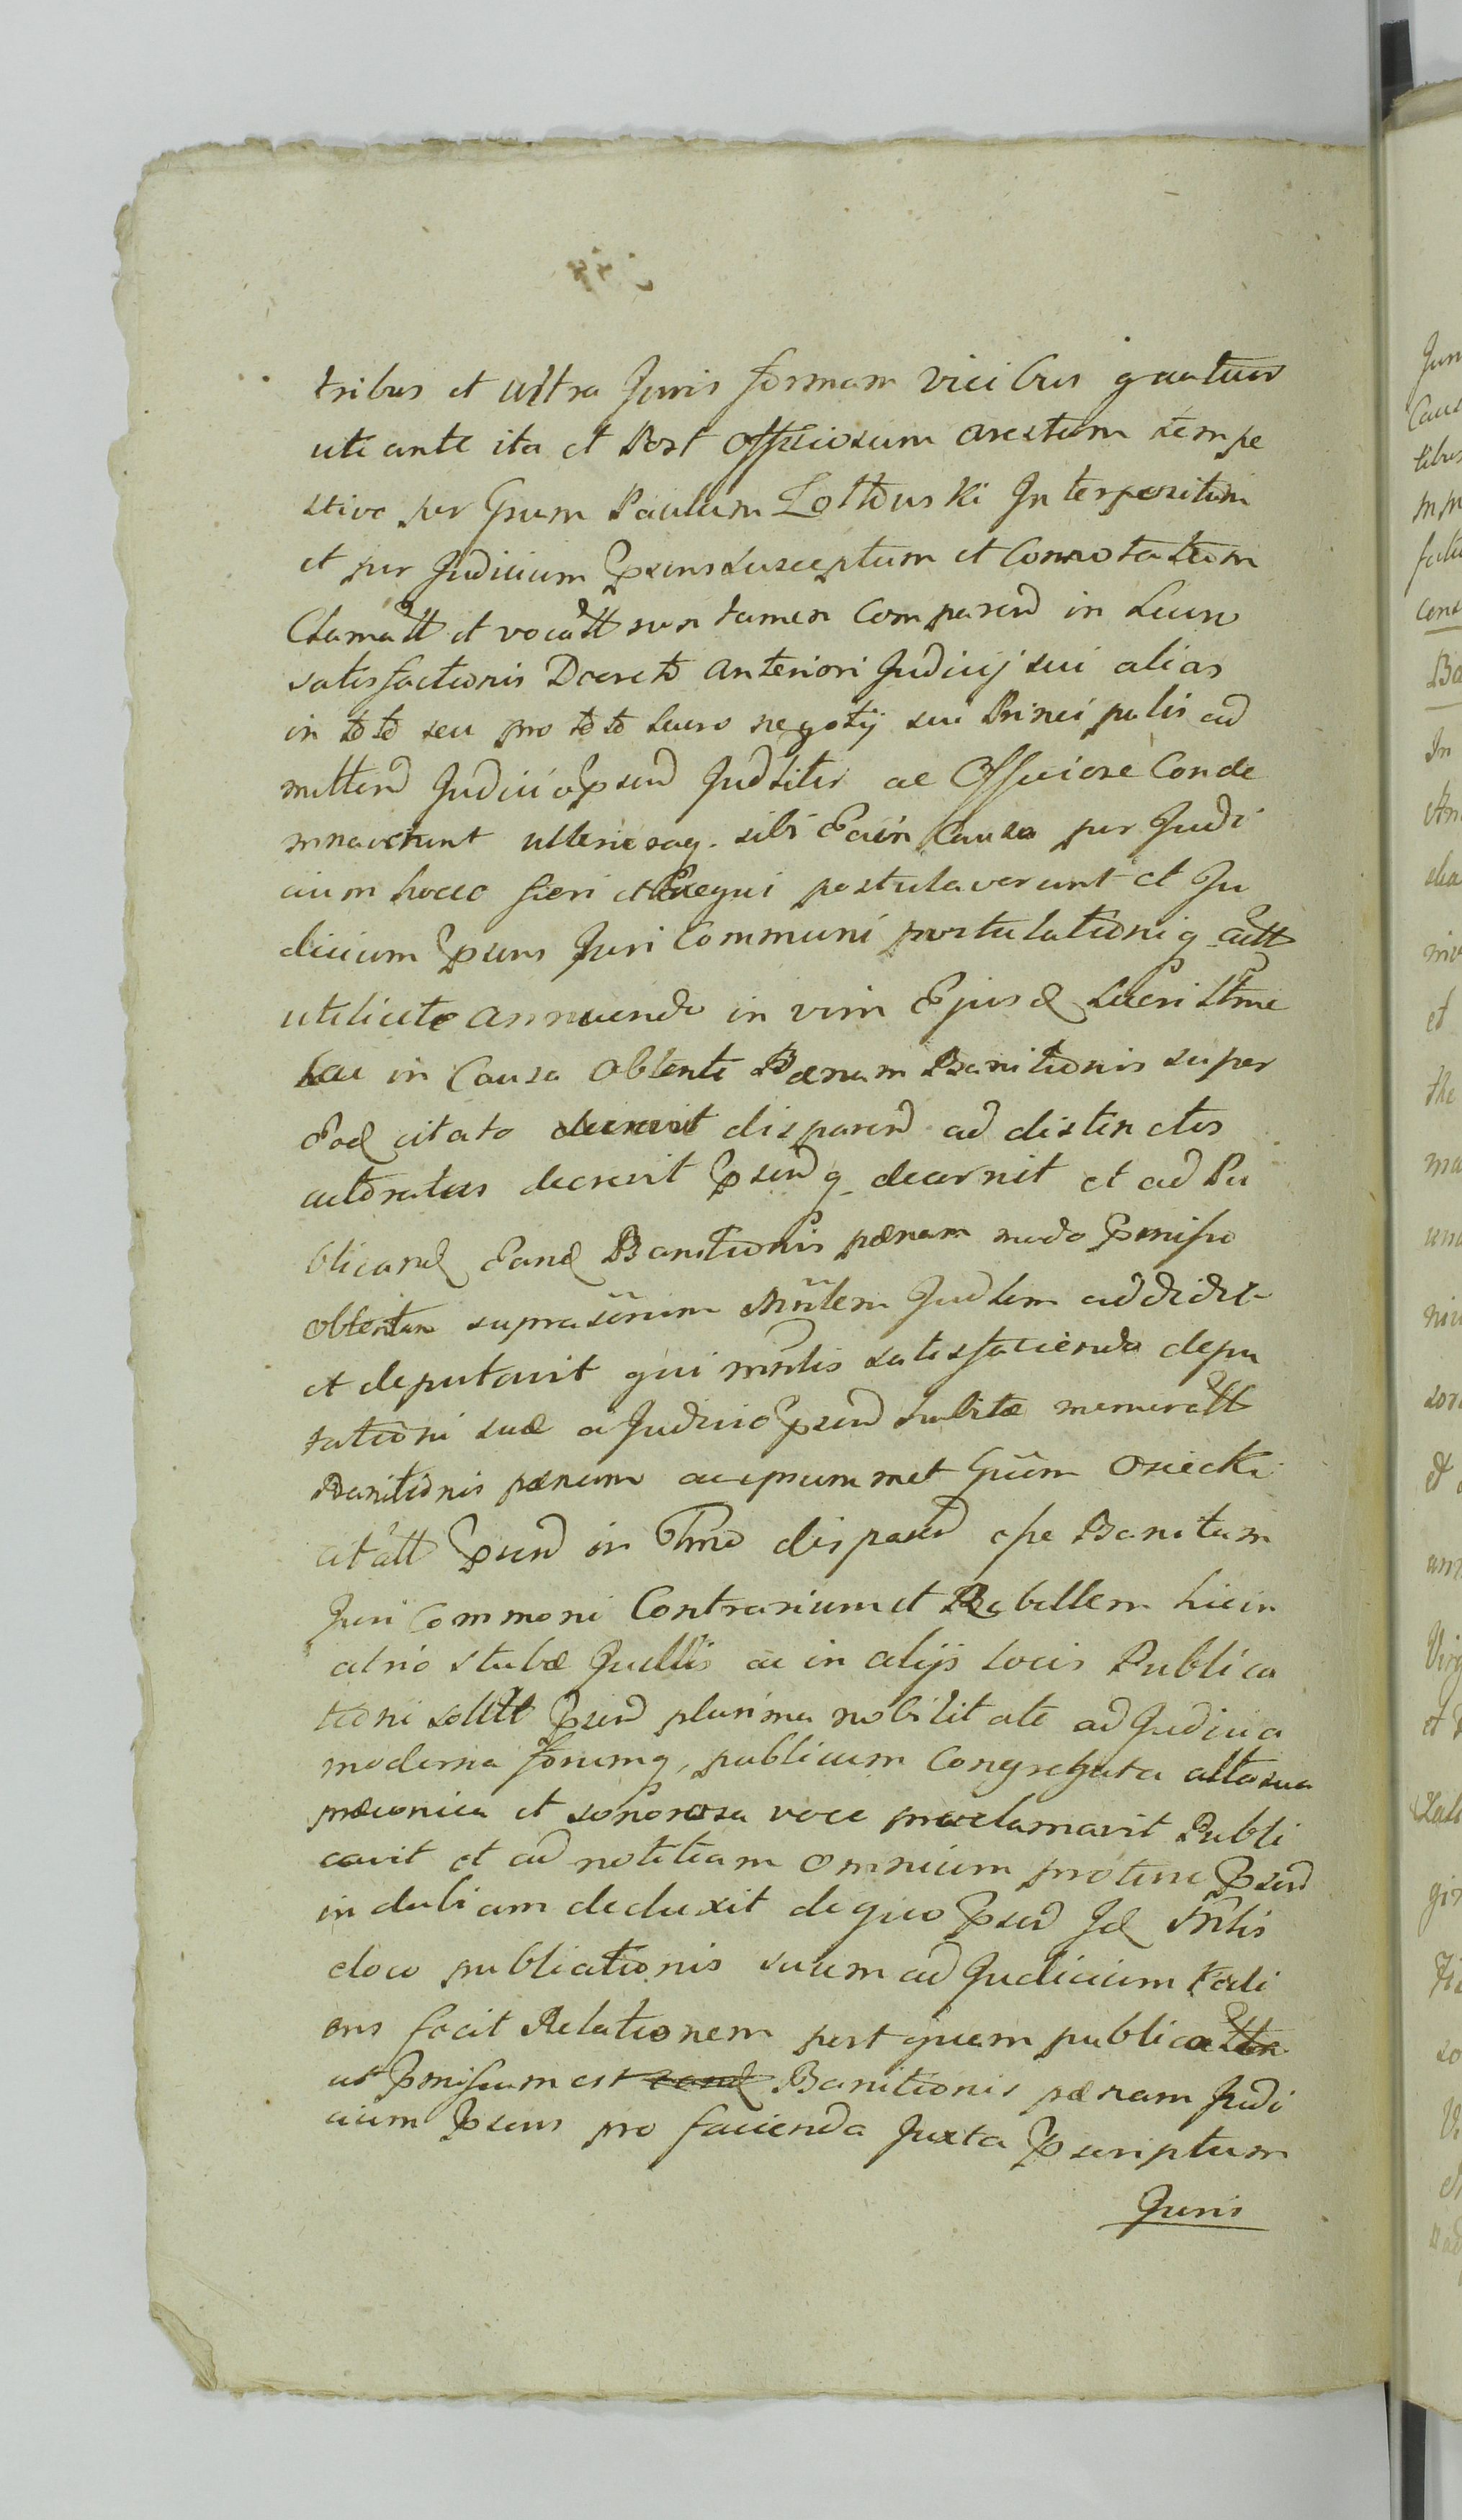 tribus et ultra Juris formam vicibus quatuor
uti ante ita et Post Officiosum arestum tempe
stive per Gsum Paulum Zołtowski Interpositum
et per Judicium Psens susceptum et Connotatum
Clamatt et vocatt non tamen Comparend in Lucro
satisfactionis Decreto anteriori Judicij sui alias
in toto seu pro toto lucro negotij sui Principalis ad
mittend Judicio Psend Judliter ac Officiose Conde
mnaverunt ulteriesaq. sibi Ea in Causa per Judi
cium hocce fieri et Exequi postulaverunt et Ju
dicium Psens Juri Communi postulationi q actt
utilicite annuendo in vim Ejusd Lucri Ltme
hac in Causa Obtenti Pænam Banitionis super
Eod citato decrevit disparend ad distinctas
actoratus decrevit Psend q decernit et ad Pu
blicand Eand Banitionis pænam modo Pmisso
obtentam suprascrium Mnrlem Judlem addidit
et deputavit qui mrlis satisfaciendo depu
tationi suæ a Judicio Psend subitæ memoratt
Banitionis pænam ac ipsummet Gsum Osiecki
citatt Psend in Tmo disparend ope Banitum
Juri Commoni Contrarium et Rebellem hic in
atrio stubæ Judlis ac in alijs locis Publica
tioni solitt Psend plurima nobilitate ad Judicia
moderna forumq, publicum Congregata alta sua
præconica et sonorosa voce proclamavit Publi
cavit et ad notitiam omnium protunc Psend
indubiam deduxit de quo Psend Jd Mrlis
eloco publicationis suum ad Judicium Redi
ens fecit Relationem post quam publicattn
ut Pmissum est eand Banitionis pænam Judi
cium Psens pro facienda Juxta Pscriptum
Juris